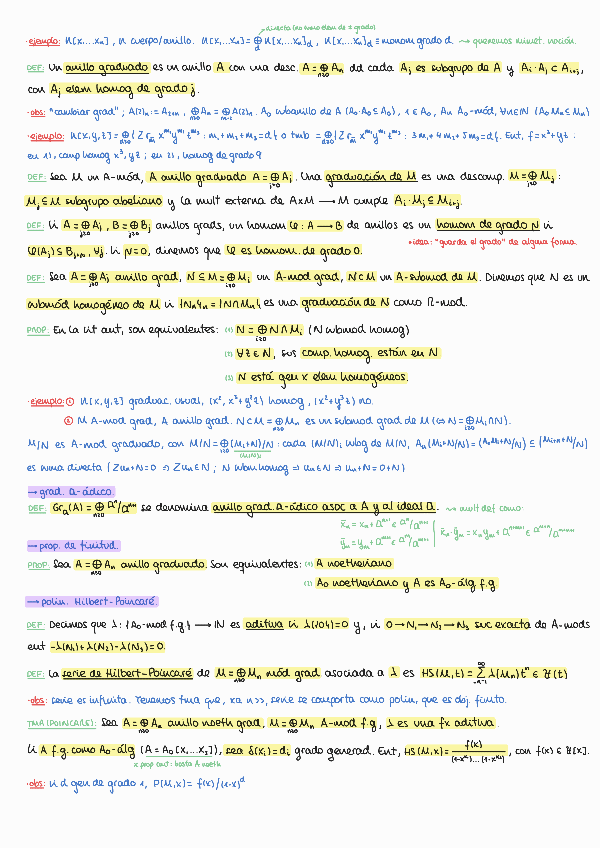 directa (no como elem de ≠ grado)
·ejemplo: K[x,...xₙ], K cuerpo/anillo. K[x,...xₙ] = ⊕_d K[x,...xₙ]_d, K[x,...xₙ]_d ≡ monom grado d. ⤳ queremos misma noción.
DEF: Un anillo graduado es un anillo A con una desc. A = ⊕_{n≥0} Aₙ dd cada Aⱼ es subgrupo de A y Aᵢ·Aⱼ ⊆ Aᵢ₊ⱼ,
con Aⱼ elem homog de grado j.
·obs: "cambiar grad"; A₀ subanillo de A (A₀·A₀ ⊆ A₀), 1 ∈ A₀, Aₙ A₀-mód, ∀n∈ℕ (A₀Mₙ ⊆ Mₙ)
·ejemplo: K[x,y,z] = ⊕ {Σ r_m x^{m₁} y^{m₂} z^{m₃} : m₁+m₂+m₃=d} o tmb = ⊕_{d≥0} {Σ r_m x^{m₁} y^{m₂} z^{m₃} : 3m₁+4m₂+5m₃=d}. Ent, f=x³+yz :
en 1), comp homog x³, yz ; en 2), homog de grado 9
DEF: Sea M un A-mód, A anillo graduado A = ⊕_{j≥0} Aⱼ. Una graduación de M es una descomp. M = ⊕_{j≥0} Mⱼ :
Mⱼ ⊆ M subgrupo abeliano y la mult externa de A×M → M cumple Aᵢ·Mⱼ ⊆ Mᵢ₊ⱼ.
DEF: Si A = ⊕_{j≥0} Aⱼ, B = ⊕_{j≥0} Bⱼ anillos grads, un homom φ: A → B de anillos es un homom de grado N si
φ(Aⱼ) ⊆ Bⱼ₊ₙ, ∀j. Si N=0, diremos que φ es homom. de grado 0.
·idea: "guarda el grado" de alguna forma.
DEF: Sea A = ⊕_{j≥0} Aⱼ anillo grad, N ⊆ M = ⊕_{j≥0} Mⱼ un A-mod grad, N⊂M un A-submod de M. Diremos que N es un
submod homogéneo de M si {Nₙ := N∩Mₙ} es una graduación de N como A-mod.
PROP: En la sit ant, son equivalentes: (1) N = ⊕_{i≥0} N∩Mᵢ (N submod homog)
(2) ∀z∈N, sus comp. homog. están en N
(3) N está gen x elem homogéneos.
·ejemplo: ① K[x,y,z] graduac. usual, (x², x³+y²z) homog, (x²+y³z) no.
② M A-mod grad, A anillo grad. N⊂M = ⊕_{n≥0} Mₙ es un submod grad de M (⇔ N = ⊕Mᵢ∩N).
M/N es A-mod graduado, con M/N = ⊕_{i≥0} (Mᵢ+N)/N : cada (M/N)ᵢ subg de M/N, Aₙ(Mᵢ+N/N) = (AₙMᵢ+N/N) ⊆ (Mᵢ₊ₙ+N/N)
(M/N)ᵢ
es suma directa (Σuₙ+N=0 ⇒ Σuₙ∈N ; N submhomog ⇒ uₙ∈N ⇒ uₙ+N=0+N)
→ grad. a-ádica
DEF: Gr_a(A) = ⊕_{n≥0} aⁿ/aⁿ⁺¹ se denomina anillo grad. a-ádico asoc a A y al ideal a. ⤳ mult def como
x̄ₙ = xₙ + aⁿ⁺¹ ∈ aⁿ/aⁿ⁺¹
ȳₘ = yₘ + aᵐ⁺¹ ∈ aᵐ/aᵐ⁺¹ | x̄ₙ·ȳₘ = xₙyₘ + aⁿ⁺ᵐ⁺¹ ∈ aᵐ⁺ⁿ/aᵐ⁺ⁿ⁺¹
→ prop. de finitud.
PROP: Sea A = ⊕_{n≥0} Aₙ anillo graduado. Son equivalentes: (1) A noetheriano
(2) A₀ noetheriano y A es A₀-álg f.g
→ polin. Hilbert-Poincaré.
DEF: Decimos que λ: {A₀-mod f.g} → ℕ es aditiva si λ({0})=0 y, si 0→N₁→N₂→N₃ suc exacta de A-mods
ent -λ(N₁)+λ(N₂)-λ(N₃)=0.
DEF: La serie de Hilbert-Poincaré de M = ⊕_{n≥0} Mₙ mód grad asociada a λ es HS(M,t) =
·obs: serie es infinita. Tenemos tma que, xa n>>, serie se comporta como polin, que es obj. finito.
TMA (POINCARÉ): Sea A = ⊕_{n≥0} Aₙ anillo noeth grad, M = ⊕_{n≥0} Mₙ A-mod f.g, λ es una fx aditiva.
Si A f.g. como A₀-álg (A = A₀[x₁...x_s]), sea δ(xᵢ)=dᵢ grado generad. Ent, HS(M,x) = f(x)/((1-x^{d₁})...(1-x^{d_s})), con f(x) ∈ ℤ[x].
x prop ant: basta A noeth
·obs: si d gen de grado 1, P(M,x) = f(x)/(1-x)^d